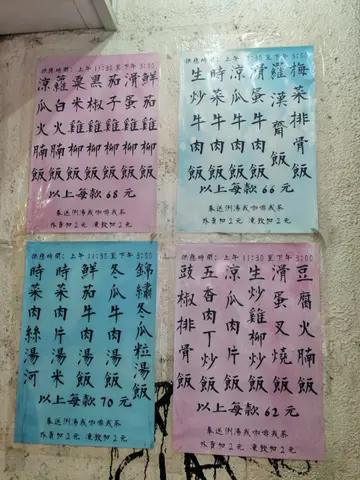 供應時間：上午 11:30 至下午 5:00
鮮茄雞柳飯
滑蛋雞柳飯
茄子雞柳飯
黑椒雞柳飯
粟米雞柳飯
蘿白火腩飯
涼瓜火腩飯
以上每款 68 元
奉送例湯或咖啡或茶
外賣加2元 凍飲加2元
供應時間：上午 11:30 至下午 5:00
梅菜排骨飯
羅漢齋飯
滑蛋牛肉飯
涼瓜牛肉飯
時菜牛肉飯
生炒牛肉飯
以上每款 66 元
奉送例湯或咖啡或茶
外賣加2元 凍飲加2元
供應時間：上午 11:30 至下午 5:00
錦繡冬瓜粒湯飯
冬瓜牛肉湯飯
鮮茄牛肉湯飯
時菜肉片湯米
時菜肉絲湯河
以上每款 70 元
奉送例湯或咖啡或茶
外賣加2元 凍飲加2元
供應時間：上午 11:30 至下午 5:00
豆腐火腩飯
滑蛋叉燒飯
生炒雞肉飯
涼瓜肉片飯
五香肉丁炒飯
豉椒排骨飯
以上每款 62 元
奉送例湯或咖啡或茶
外賣加2元 凍飲加2元